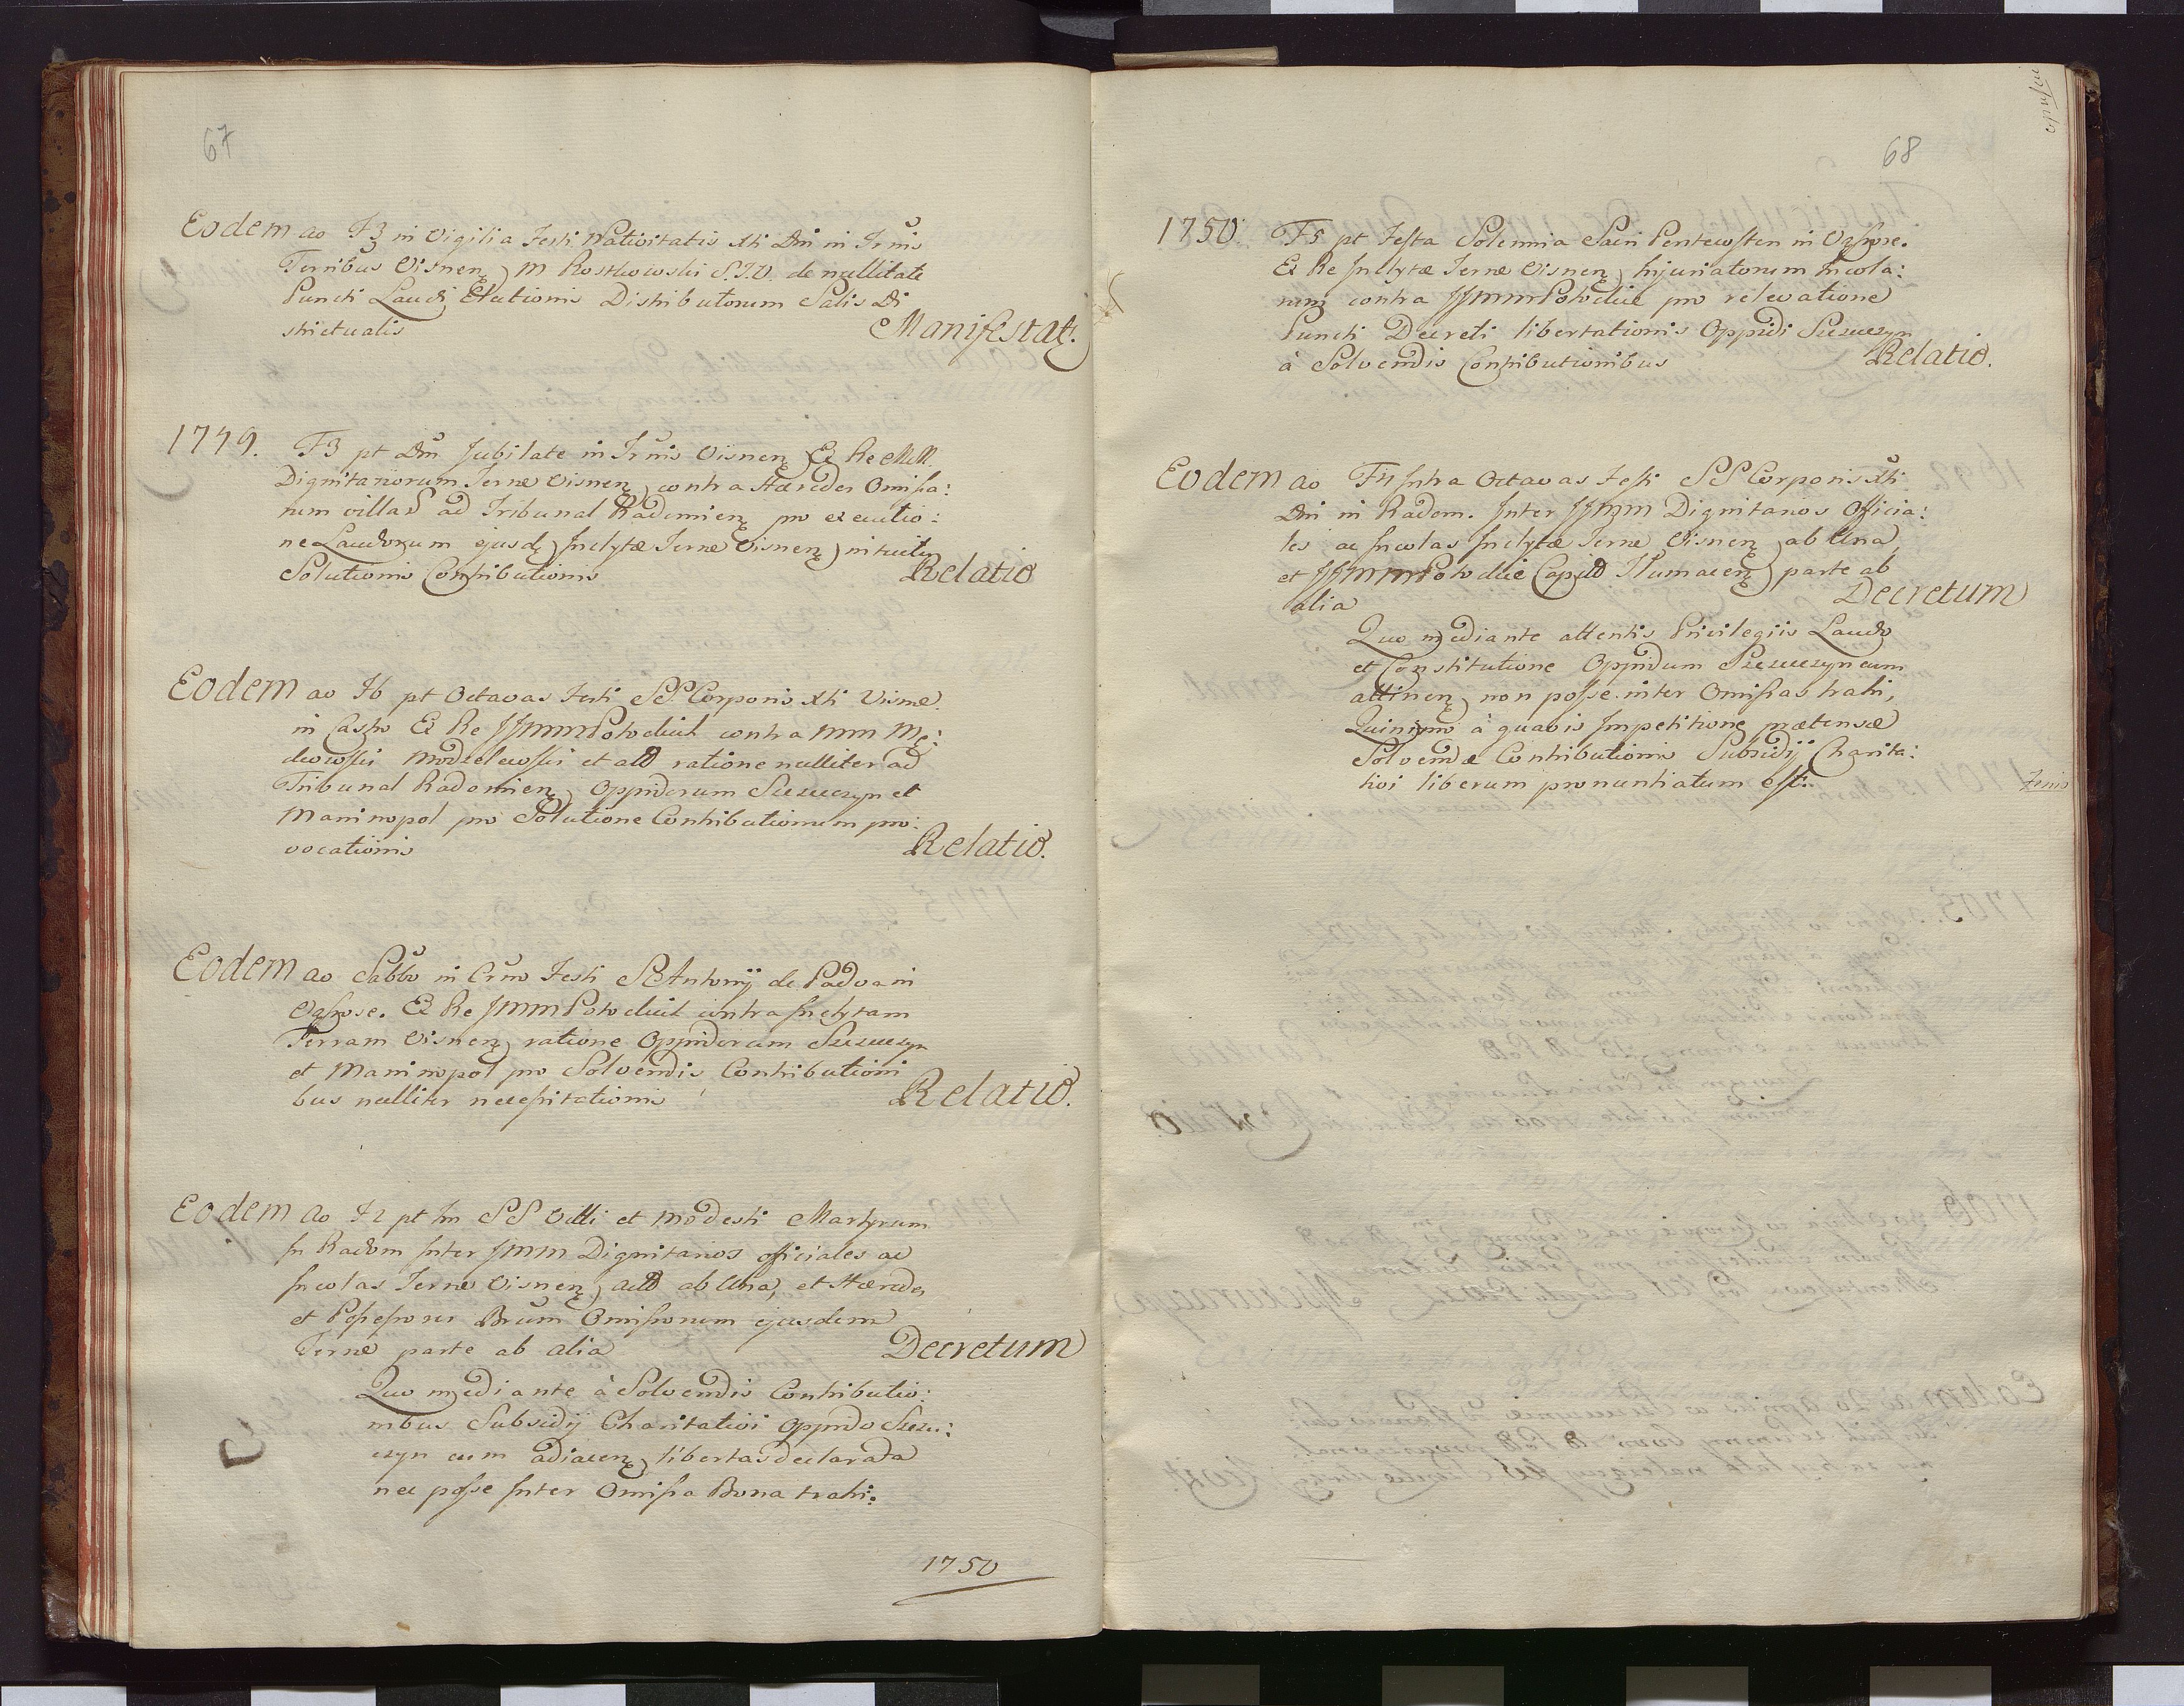 67
Eodem ao F3 in Vigilia Festi Nativitatis Xti Dni in Trnis
Terribus Visnen M Rostkowski S.T.V. de nullitate
Puncti Laudi Elutionis Distributorum Salis Di
strictualis Manifestat.
1749. F3 pt Dm Jubilate in Trnis Visnen Ex Re MM.
Dignitariorum Terræ Visnen contra Hæredes Omissa:
rum villar ad Tribunal Radomien pro executio:
ne Laudorum ejusd Inclytæ Terræ Visnen intuitu
Solutionis Contributionis Relatio
Eodem ao F6 pt Octavas Festi SS Corporis Xti Visnæ
in Castro Ex Re JJmm Potockich contra mm
Modzelewski et alld ratione nulliter ad
Tribunal Radomien Oppidorum Szczuczyn et
Marinopol pro Solutione Contributionum pro:
vocationis Relatio.
Eodem ao Sabbo in Crno Festi S Antonij de Padva in
Ex Re Jmm Potockich contra Inclytam
Terram Visnen ratione Oppidorum Szczuczyn
et Marinopol pro Solvendis Contributioni
bus nulliter necessitationis Relatio.
Eodem ao F2 pt Fm SS Viti et Modesti Martyrum
In Radom Inter Jmm Dignitarios officiales ac
Incolas Terræ Visnen alld ab Una, et Hæredes
et Possessores Bnum Omissorum ejusdem
Terræ parte ab alia Decretum
Quo mediante à Solvendis Contributio:
nibus Subsidij Charitativi Oppido Szczu:
czyn cum adiacen libertas declarata
nec posse Inter Omissa Bona trahi.
1750
68
1750. F5 pt Festa Solennia Sacri Pentecosten in
Ex Re Inclytæ Terræ Visnen Injuriatorum Incola:
rum contra JJmm Potockie pro relevatione
Puncti Decreti libertationis Oppidi Szczuczyn
à Solvendis Contributionibus Relatio.
Eodem ao F4 Intra Octavas Festi SS Corporis Xti
Dni in Radom. Inter JJmm Dignitarios Officia:
les ac Incolas Inclytæ Terræ Visnen ab Una,
et JJmm Potockie Capitd Tlumacen parte ab
alia Decretum
Quo mediante attentis Privilegiis Laudo
et Constitutione Oppidum Szczuczyn cum
attinen non posse inter Omissas trahi,
Quinimo à quavis Impetitione prætensæ
Solvendæ Contributionis Subsidij Charita:
tivi liberum pronuntiatum est.